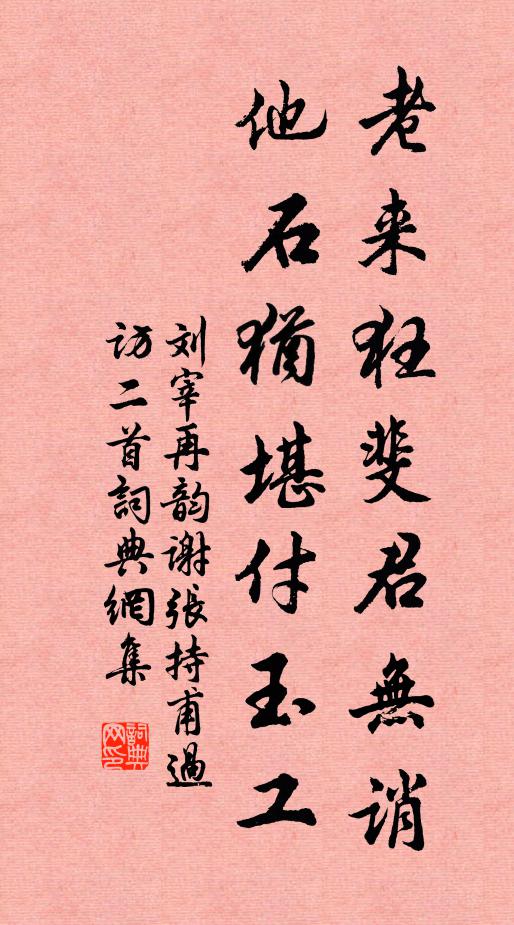 老来狂斐君無誚
他石猶堪付玉工
刘宰再韵谢張持甫過
访二首詞典網集
詞典网印